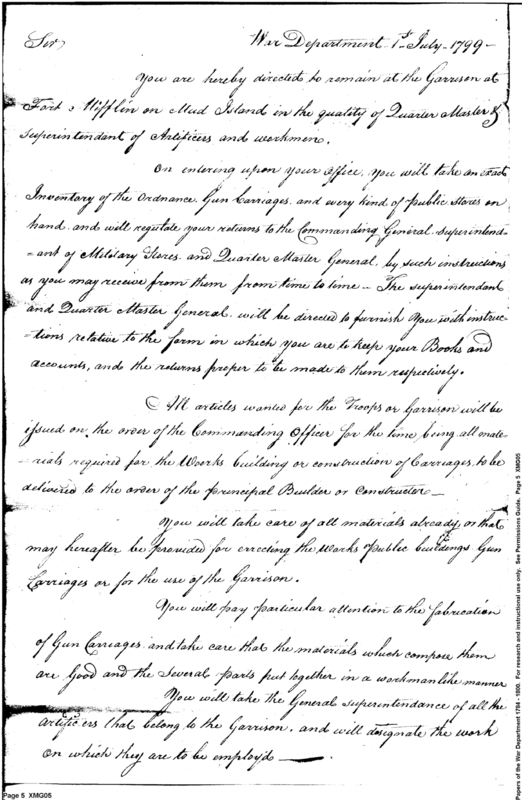 Sir War Department 1st July 1799 -
You are hereby directed to remain at the Garrison at
Fort Mifflin on Mud Island in the quality of Quarter Master &
Superintendant of Artificers and workmen.
On entering upon your office, you will take an exact
Inventory of the Ordnance, Gun Carriages, and every kind of public Stores on
hand, and will regulate your returns to the Commanding General, Superintend-
=ant of Military Stores, and Quarter Master General, by such instructions
as you may receive from them from time to time - The superintendant
and Quarter Master General, will be directed to furnish You with instruc-
=tions relative to the form in which you are to keep your Books and
accounts, and the returns proper to be made to them respectively.
All articles wanted for the Troops or Garrison will be
issued on the order of the Commanding Officer for the time being, all mate-
=rials required for the Works building or construction of Carriages, to be
delivered to the order of the Principal Builder or Constructer -
You will take care of all materials already, or that
may hereafter be provided for erecting the Works Public buildings Gun
Carriages or for the use of the Garrison.
You will pay particular attention to the fabrication
of Gun Carriages, and take care that the materials which compose them
are Good and the Several parts put together in a workmanlike manner
You will take the General Superintendance of all the
Artificers that belong to the Garrison, and will designate the work
on which they are to be employ'd -
Page 5 XMG05
Papers of the War Department 1784 - 1800. For research and instructional use only. See Permissions Guide. Page 5 XMG05